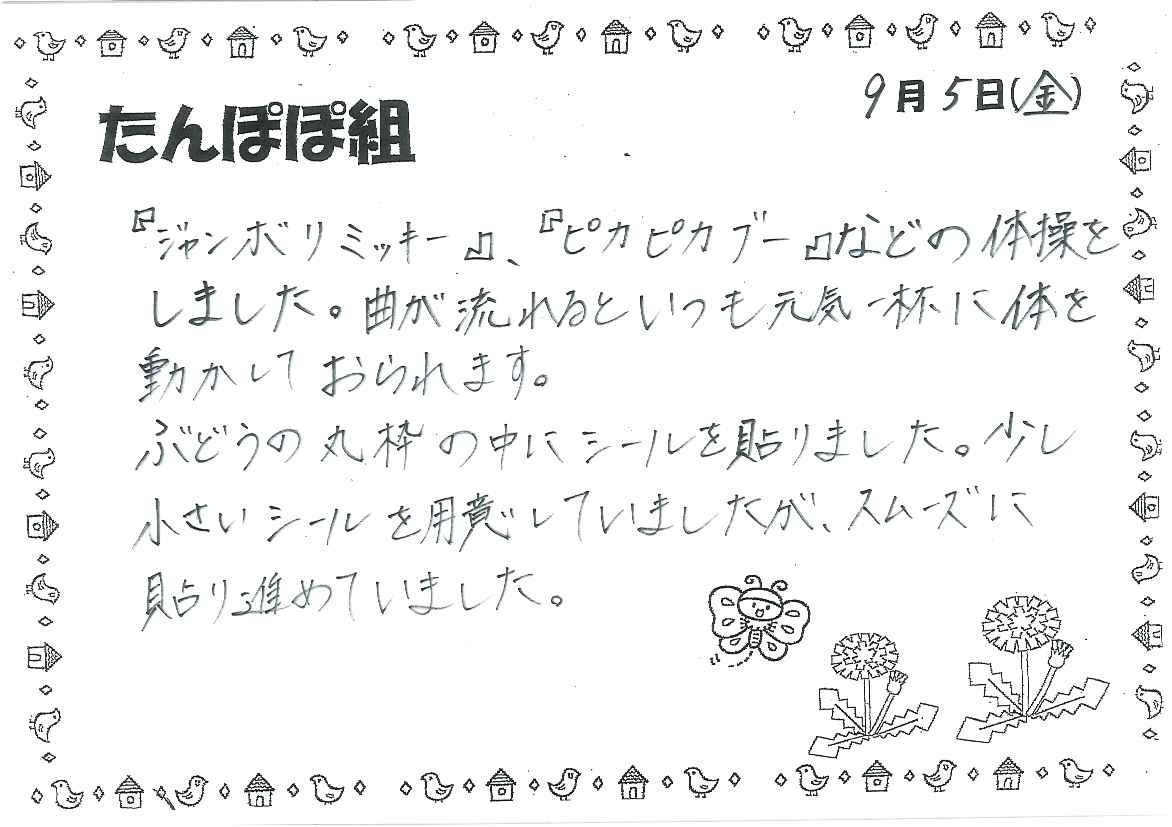 9月5日(金)
たんぽぽ組
『ジャンボリミッキー』、『ピカピカブー』などの体操を
しました。曲が流れるといつも元気一杯に体を
動かしておられます。
ぶどうの丸枠の中にシールを貼りました。少し
小さいシールを用意していましたが、スムーズに
貼り進めていました。